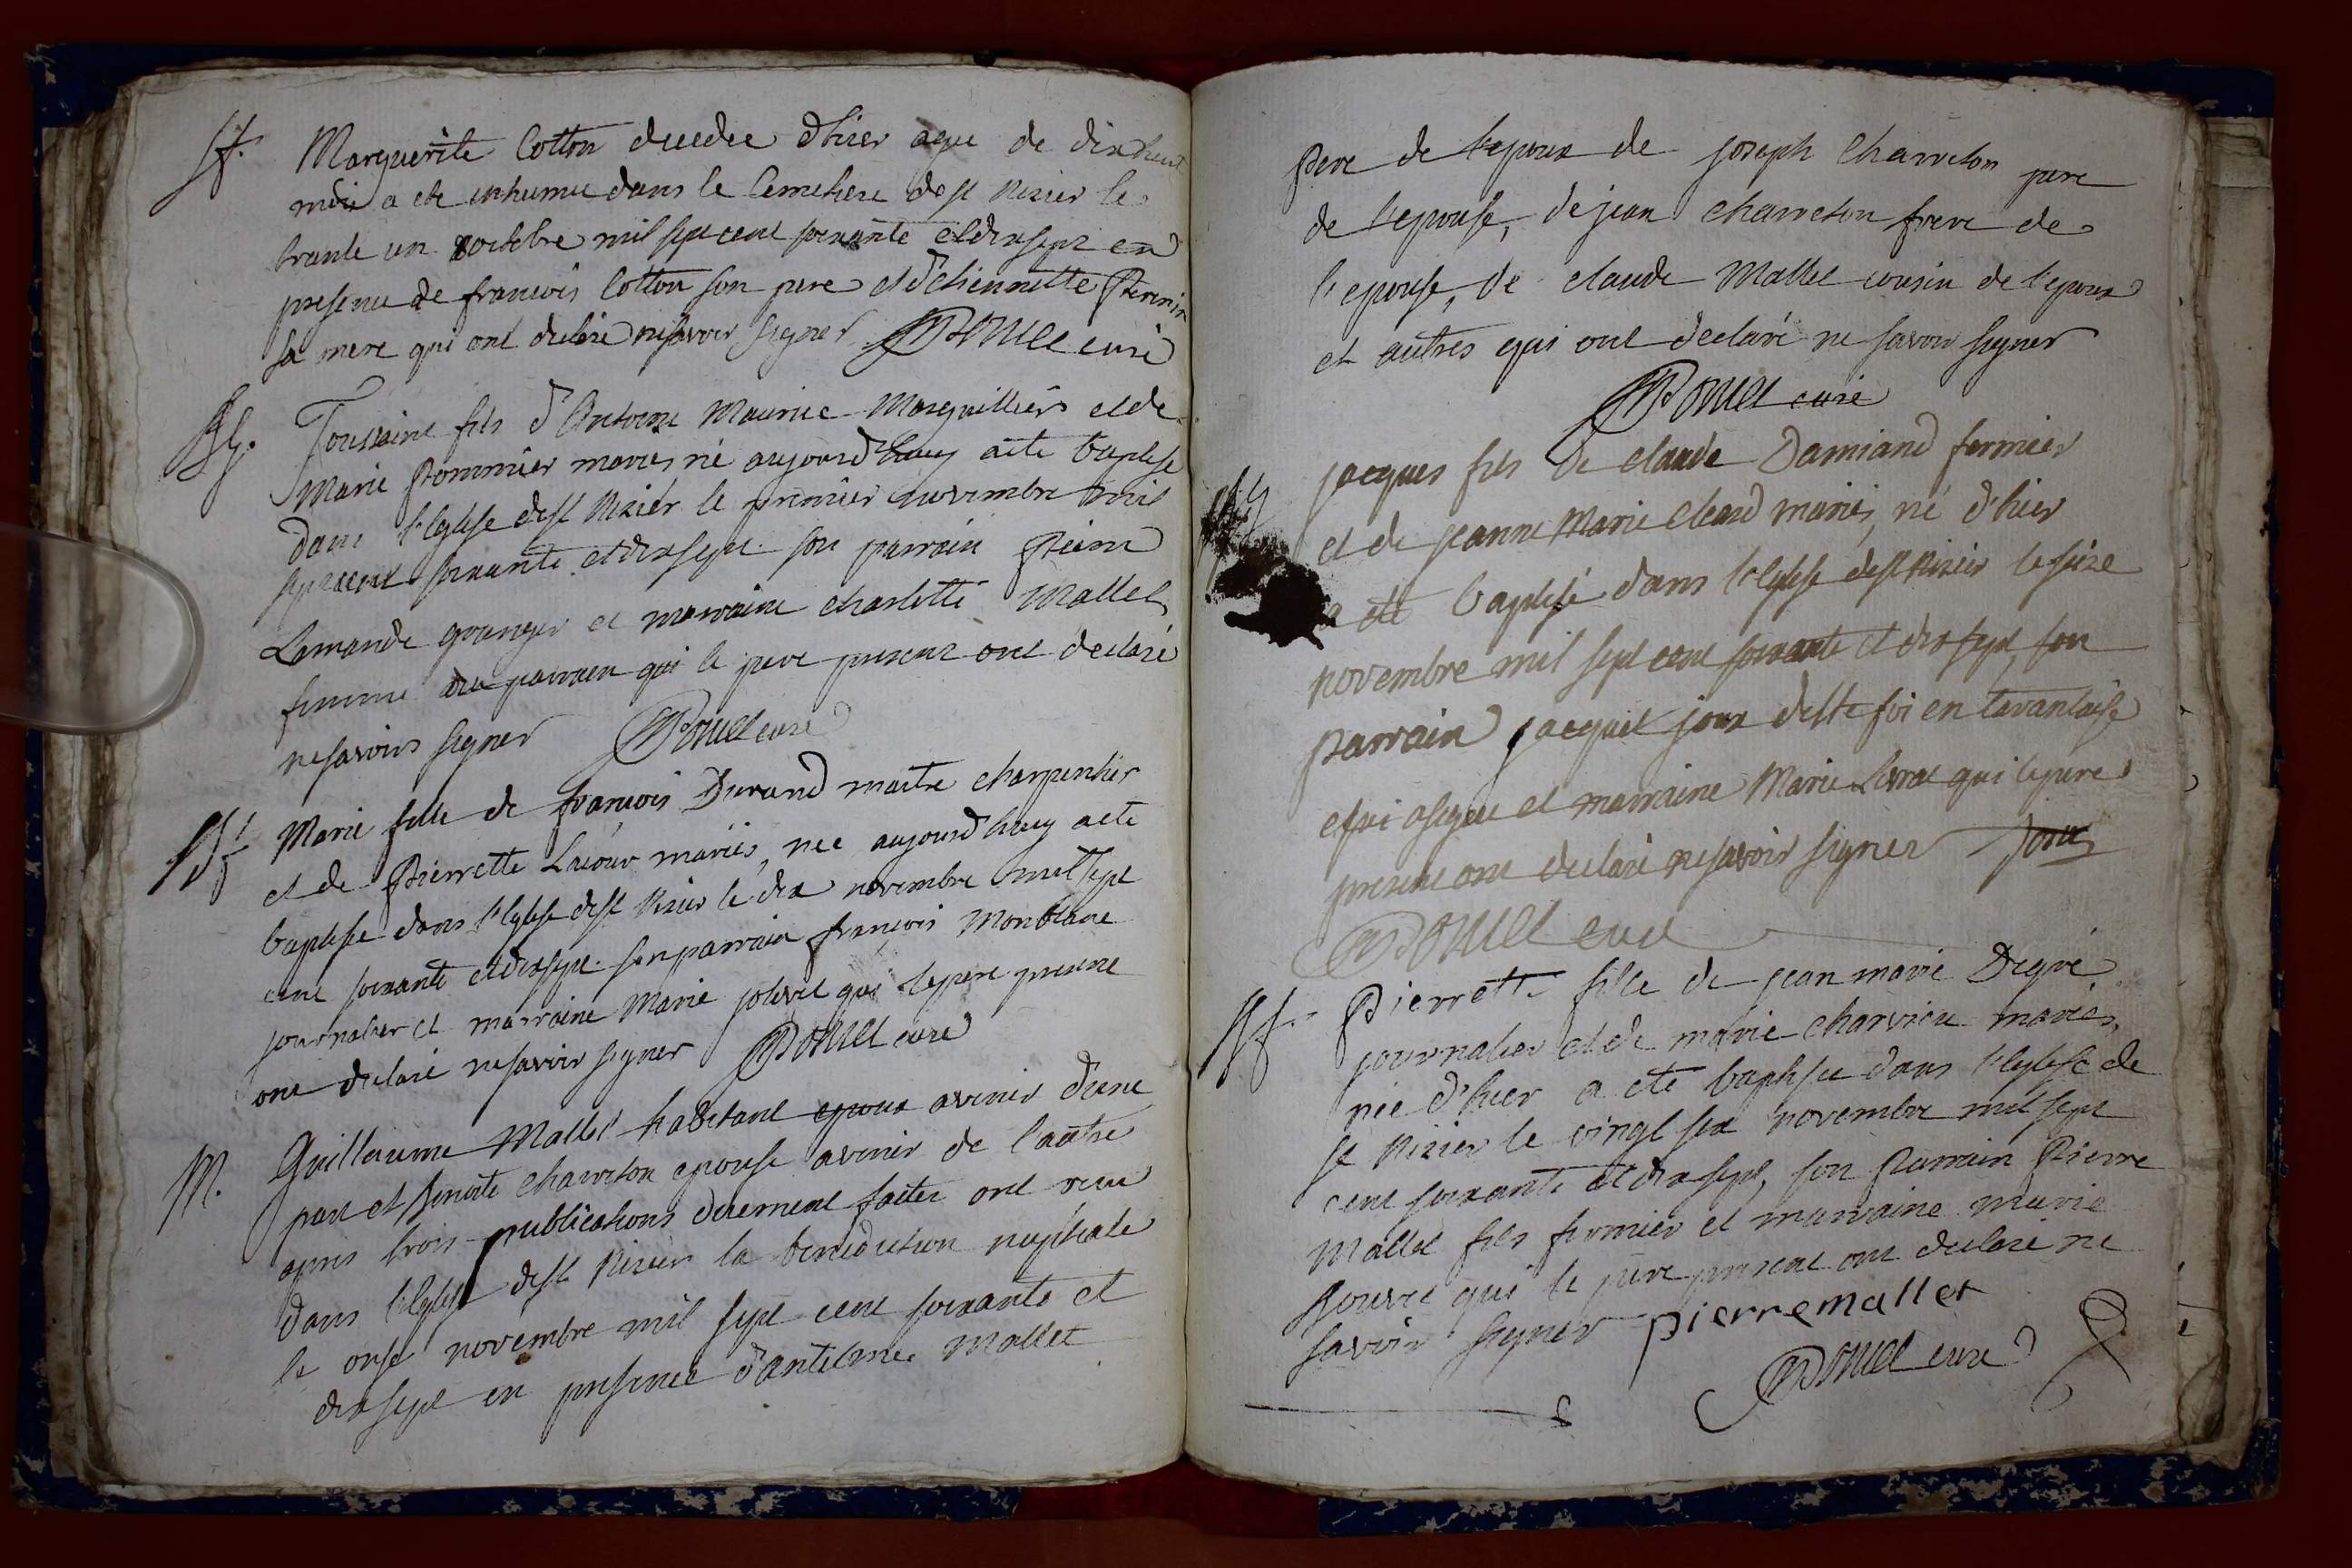 Sf. Marguerite Cotton decedee d'hier agee de dixhuit
mois a ete inhumee dans le Cemetiere de st Nizier le
trante un octobre mil sept cent soixante et dix sept en
presence de francois Cotton son pere et d'Etiennette
sa mere qui ont declaré ne savoir signer curé
Bg. Toussaint fils d'Antoine Maurice Marguilliers et de
Marie Pommier mariés né aujourd'huy a ete baptisé
dans l'Eglise de st Nizier le premier novembre mil
sept cent soixante et dix sept. son parrain Pierre
Lamande granger et marraine charlotte Mallet
femme du parrain qui le pere present ont declaré
ne savoir signer curé
Bf. Marie fille de françois Durand maitre charpentier
et de Pierrette Lacour mariés, nee aujourd'huy a ete
baptisee dans l'Eglise de st Nizier le dix novembre mil sept
cent soixante et dix sept. son parrain françois Monblanc
journalier et marraine Marie qui le pere present
ont declaré ne savoir signer curé
M. Guillaume Mallet habitant epoux avenir d'une
part et Benoite Charreton epouse avenir de l'autre
apres trois publications duement faites ont recu
dans l'Eglise de st Nizier la benediction nuptiale
le onse novembre mil sept cent soixante et
dix sept en presence d'antelme Mallet
pere de l'epoux de joseph Charreton pere
de l'epouse, de jean charreton frere de
l'epouse, de claude Mallet cousin de l'epoux
et autres qui ont declaré ne savoir signer
curé
Bg jacques fils de claude Damiand fermier
et de jeanne Marie mariés, né d'hier
a ete baptisé dans l'Eglise de st Nizier le seize
novembre mil sept cent soixante et dix sept, son
parrain jacques en tarantaise
et marraine Marie qui le pere
present ont declaré ne savoir signer
curé
Bf. Pierrette fille de jean marie Degré
journalier et de marie charvieu mariés,
née d'hier a ete baptisée dans l'Eglise de
st Nizier le vingt six novembre mil sept
cent soixante et dix sept, son Parrain Pierre
Mallet fils fermier et marraine marie
qui le pere present ont declaré ne
savoir signer pierre mallet
curé